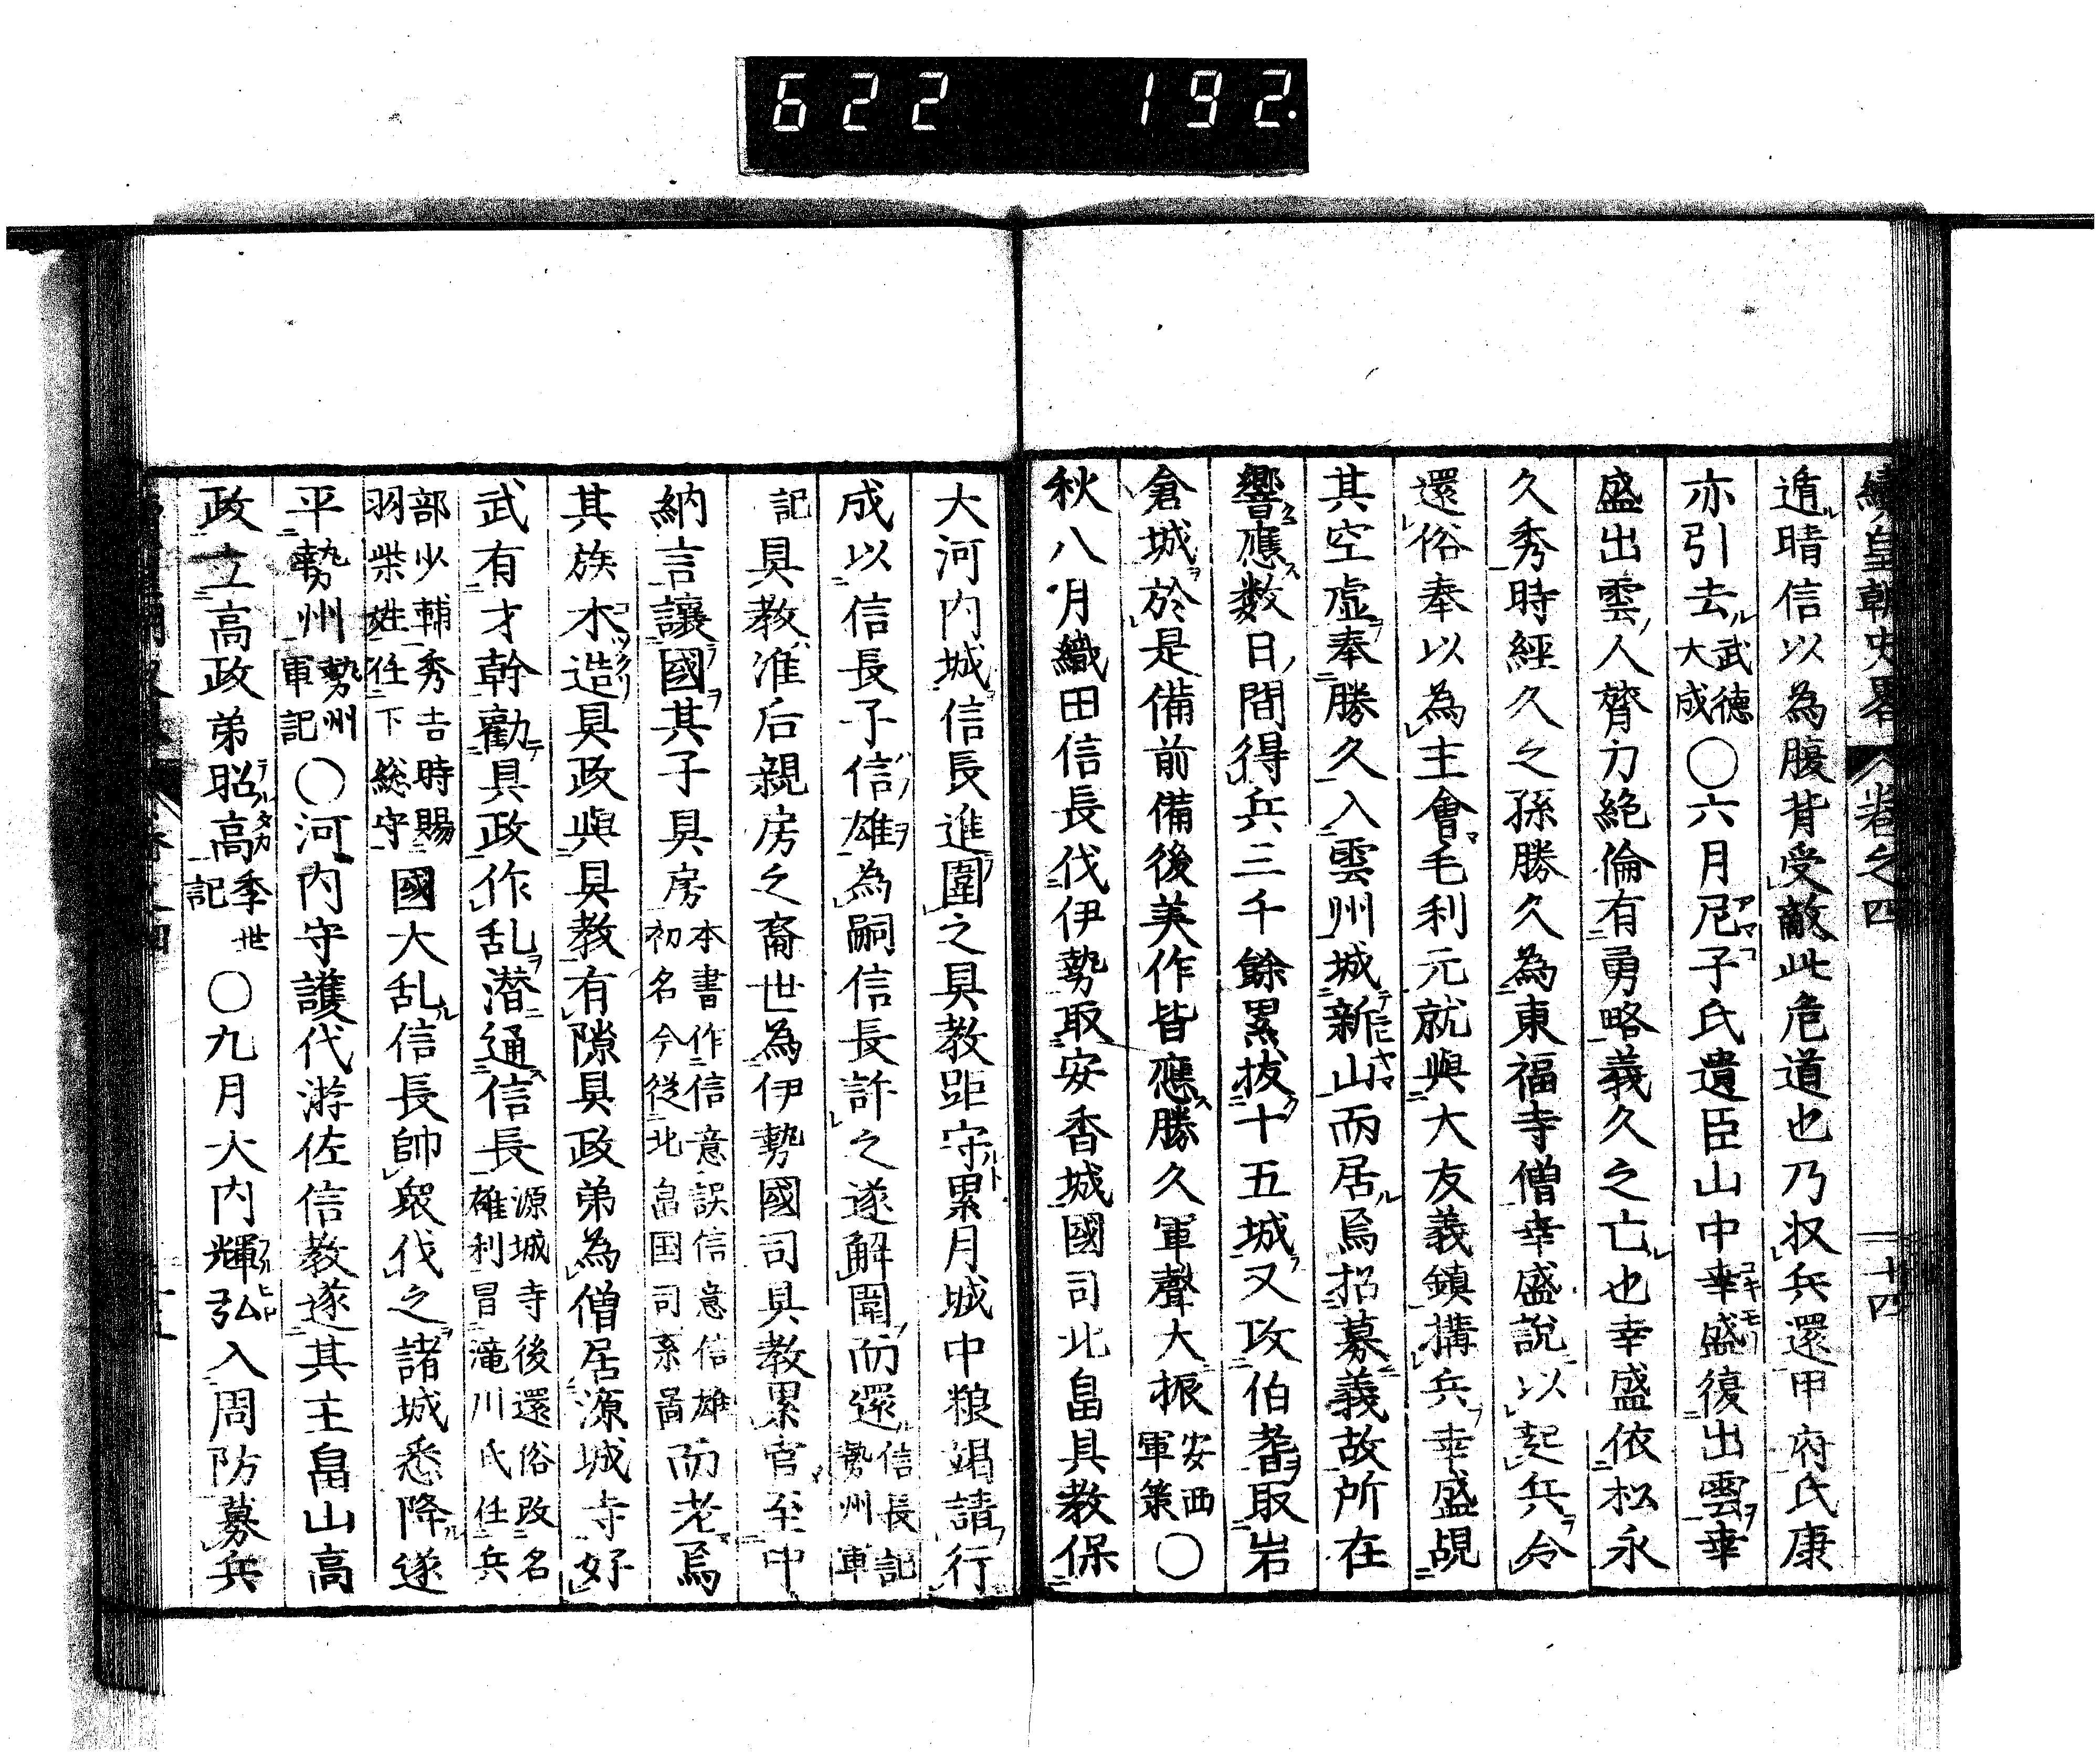 622 192.
續皇朝史畧 卷之四 十四
遁晴信以為腹背受敵此危道也乃収兵還甲府氏康
亦引去武德大成○六月尼子氏遺臣山中幸盛復出雲幸
盛出雲人膂力絶倫有勇略義久之亡也幸盛依松永
久秀時經久之孫勝久為東福寺僧幸盛說以起兵令
還俗奉以為主會毛利元就與大友義鎮搆兵幸盛覘
其空虚奉勝久入雲州城新山而居焉招募義故所在
響應数日間得兵三千餘累拔十五城又攻伯耆取岩
倉城於是備前備後美作皆應勝久軍聲大振安西軍策○
秋八月織田信長伐伊勢取安香城國司北畠具教保
大河内城信長進圍之具教距守累月城中粮竭請行
成以信長子信雄為嗣信長許之遂解圍而還信長記勢州軍
記具教准后親房之裔世為伊勢國司具教累官至中
納言讓國其子具房本書作信意誤信意信雄初名今從北畠国司系啚而老焉
其族木造具政與具教有隙具政弟為僧居源城寺好
武有才幹勸具政作乱潜通信長源城寺後還俗改名雄利冒滝川氏任兵
部少輔秀吉時賜羽柴姓任下総守國大乱信長帥衆伐之諸城悉降遂
平勢州勢州軍記○河内守護代游佐信教逐其主畠山高
政立高政弟昭高季世記○九月大内輝弘入周防募兵